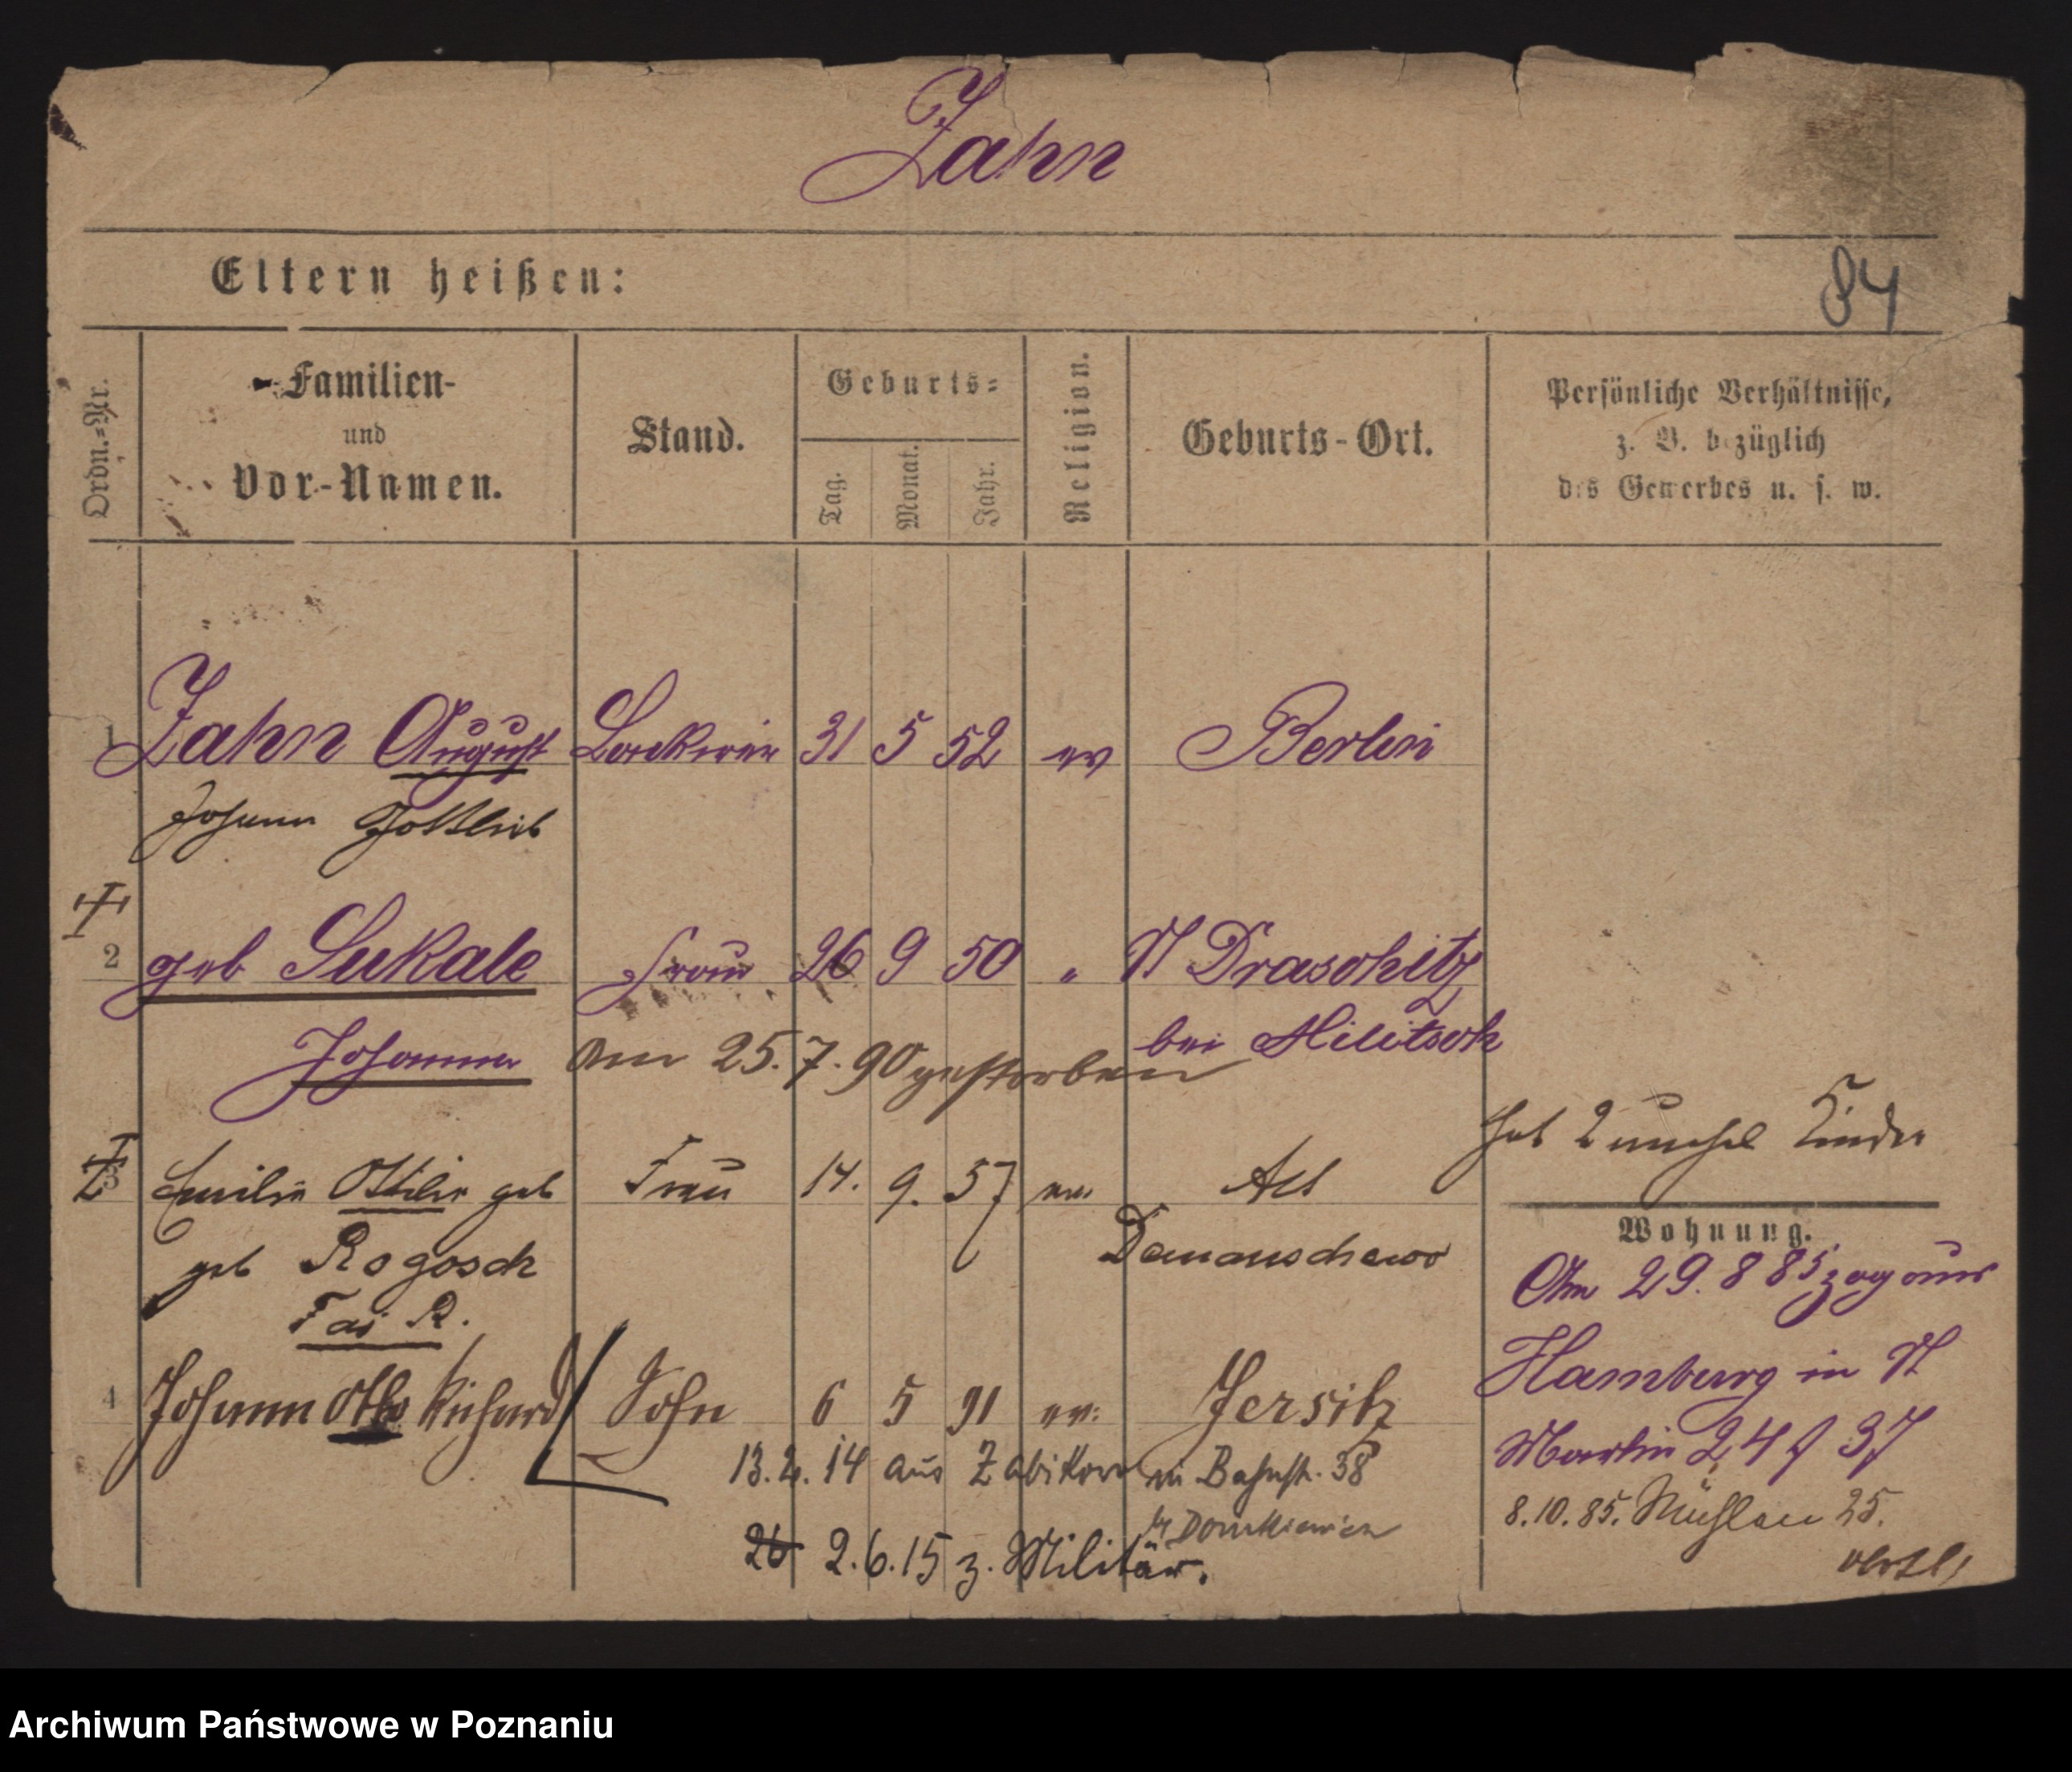 Zahn
Eltern heißen:
84
Ordn.-Nr.
Familien-
und
Vor-Namen.
Stand.
Geburts-
Tag.
Monat.
Jahr.
Religion.
Geburts-Ort.
Persönliche Verhältnisse,
z. B. bezüglich
des Gewerbes u. s. w.
1 Zahn August Lackirer 31 5 52 ev Berlin
Johann Gottlieb
2 geb Sukale Frau 26 9 50 " Kl Draschitz
bei Militsch
Johanna am 25.7.90 gestorben
hat 2 unehel Kinder
3 Emilie Ottilie geb Frau 14. 9. 57 ev. Alt
geb Rogosch Damanschewo
R.
4 Johann Otto Richard Sohn 6 5 91 ev. Jersitz
13.2.14 aus Zabikowo in Bahnst. 38
26 2.6.15 z. Militär.
Wohnung.
Am 29.8 85 zog aus
Hamburg in St
Martin 24 37
8.10.85. Mühlen 25.